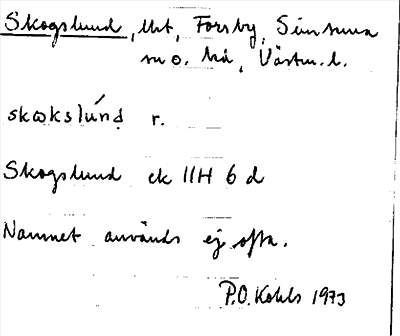 Skogslund, lht, Forsby, Simtuna
sn o. hd, Västm. l.
skɷkslúnḍ r.
Skogslund ek 11H 6 d
Namnet används ej ofta.
P.O. Kohls 1973